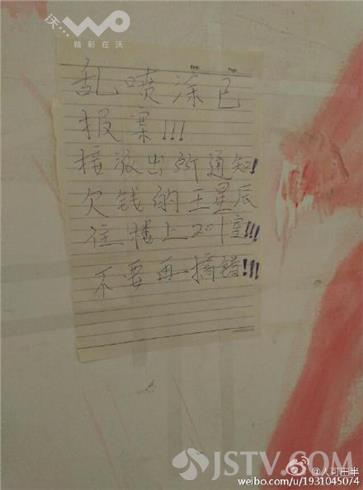 沃... WO
精彩在沃
乱喷涂已
报案!!!
接派出所通知!
欠钱的王星辰
住楼上201室!!!
不要再搞错!!!
JSTV.COM
weibo.com/u/1931045074